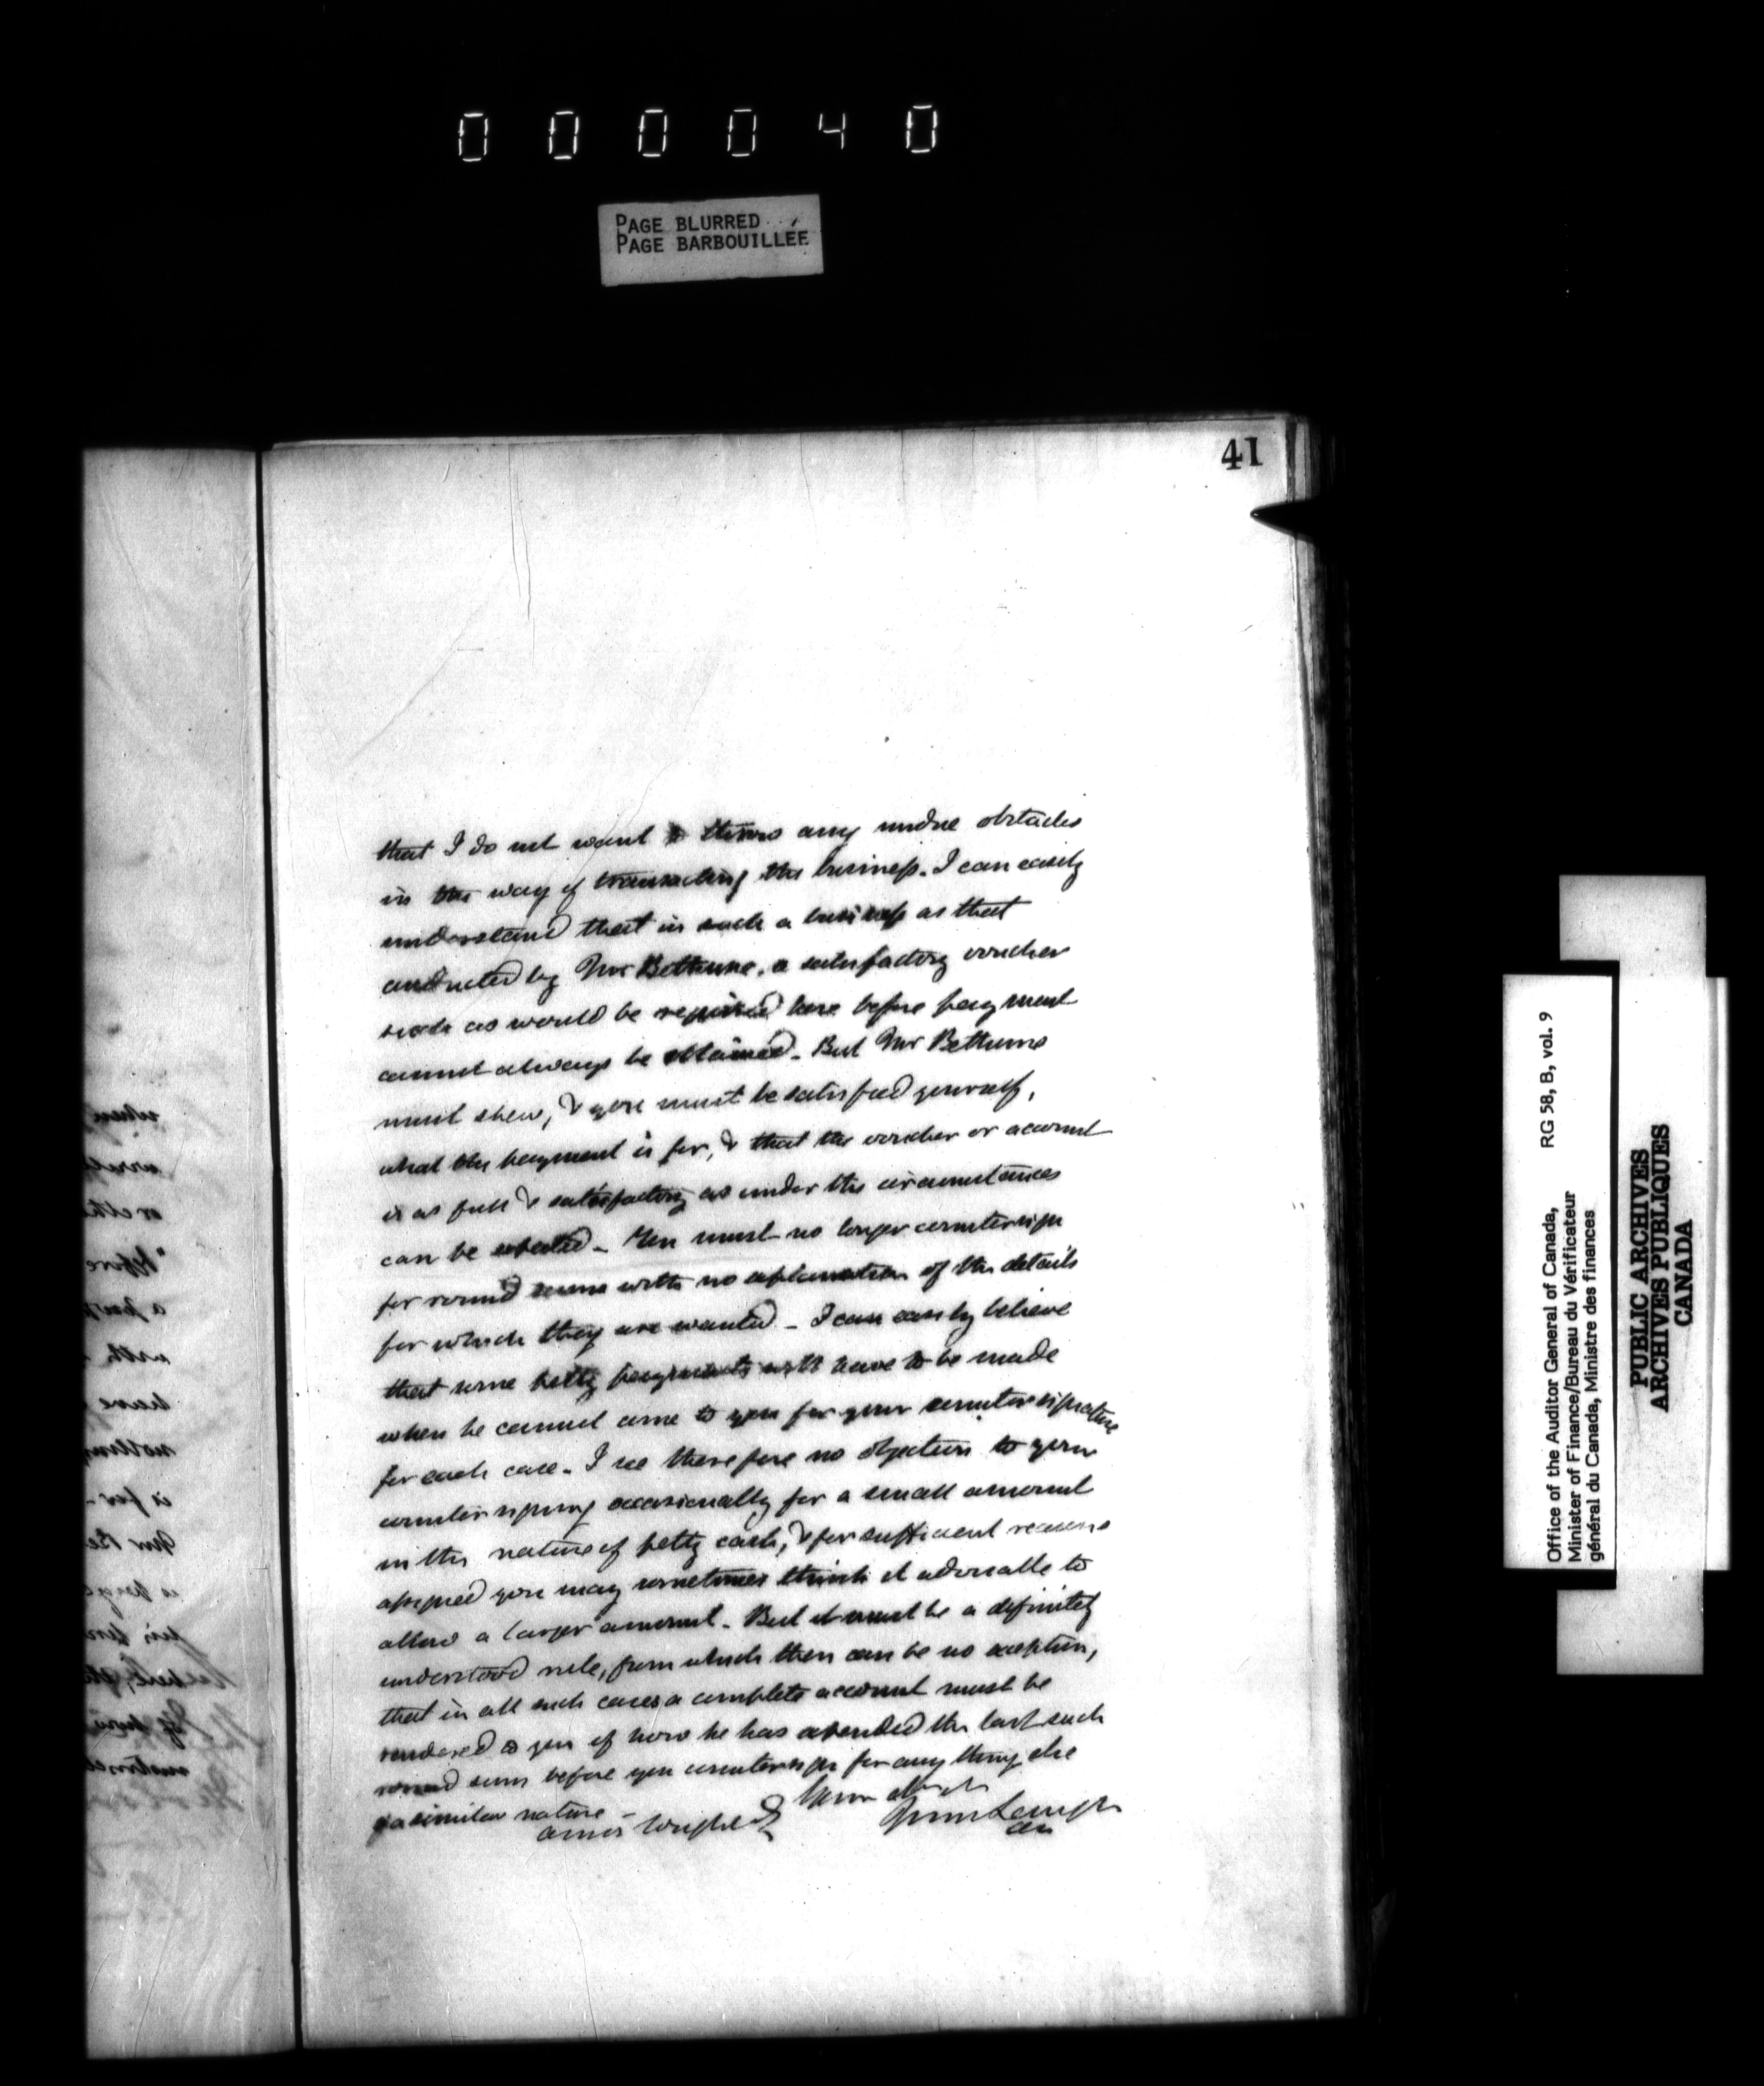 000040
PAGE BLURRED
PAGE BARBOUILLÉE
41
that I do not want to throw any undue obstacles
in the way of transacting the business. I can easily
understand that in such a business as that
conducted by Mr Bethune, a satisfactory voucher
such as would be required here before payment
cannot always be obtained. But Mr Bethune
must shew, & you must be satisfied yourself,
what the payment is for, & that the voucher or account
is as full & satisfactory as under the circumstances
can be expected. You must no longer countersign
for round sums with no explanation of the details
for which they are wanted. I can easily believe
that some petty payments will have to be made
when he cannot come to you for your countersignature
for each case. I see therefore no objection to your
countersigning occasionally for a small amount
in the nature of petty cash, & for sufficient reasons
assigned you may sometimes think it advisable to
allow a larger amount. But it must be a definitely
understood rule, from which there can be no exception,
that in all such cases a complete account must be
rendered to you of how he has expended the last such
round sum before you countersign for any thing else
of a similar nature -
Your
Langton
Wright
Office of the Auditor General of Canada, RG 58, B, vol. 9
Minister of Finance/Bureau du Vérificateur
général du Canada, Ministre des finances
PUBLIC ARCHIVES
ARCHIVES PUBLIQUES
CANADA